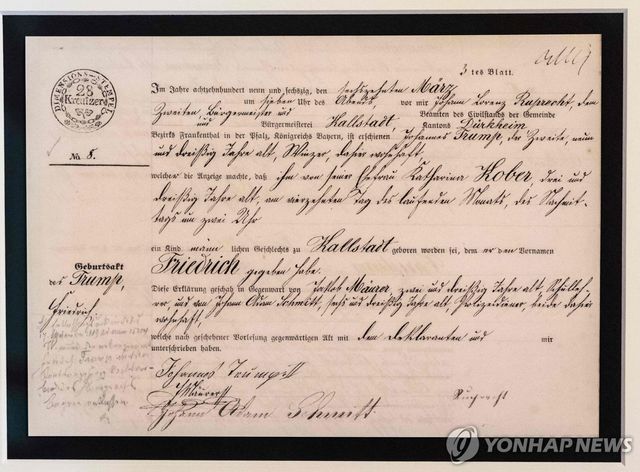 3 tes Blatt.
DIMENSIONS-STEMPEL
28
Kreutzer
No. 8.
Im Jahre achtzehnhundert neun und sechszig, den sechszehnten März
um sieben Uhr des Abends, vor mir Johann Lorenz Ruprecht, dem
Zweiten Bürgermeister und Beamten des Civilstands der Gemeinde
und Bürgermeisterei Kallstadt, Kantons Dürkheim
Bezirks Frankenthal in der Pfalz, Königreichs Bayern, ist erschienen Johannes Trump, der Zweite, neun
und dreißig Jahre alt, Winzer, daher wohnhaft
welcher die Anzeige machte, daß ihm von seiner Ehefrau Katharina Kober, drei und
dreißig Jahre alt, am vierzehnten Tag des laufenden Monats, des Nachmit-
tags um zwei Uhr
ein Kind männlichen Geschlechts zu Kallstadt geboren worden sei, dem er den Vornamen
Friedrich gegeben habe.
Geburtsakt
des Trump,
Friedrich.
Diese Erklärung geschah in Gegenwart von Jakob Maurer, zwei und dreißig Jahre alt, Schulleh-
rer und von Johann Adam Schmitt, sechs und dreißig Jahre alt, Polizeidiener, beide daher
wohnhaft,
welche nach geschehener Vorlesung gegenwärtigen Akt mit dem Deklaranten und mir
unterschrieben haben.
Johannes Trump II
Maurer
Johann Adam Schmitt.
Ruprecht
YONHAP NEWS